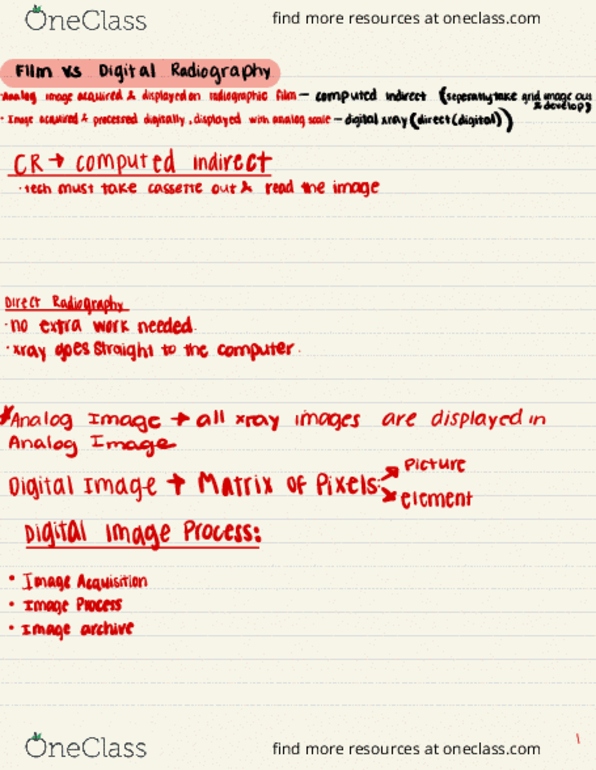 OneClass
find more resources at oneclass.com
Film vs Digital Radiography
·Analog image acquired & displayed on radiographic film - computed indirect (seperatly take grid image out & develop)
· Image acquired & processed digitally, displayed with analog scale - digital xray (direct (digital))
CR → computed indirect
· tech must take cassette out & read the image
Direct Radiography
· no extra work needed.
· xray goes straight to the computer.
*Analog Image → all xray images are displayed in
Analog Image
Digital Image → Matrix of Pixels: → Picture
→ element
Digital Image Process:
• Image Acquisition
• Image Process
• Image archive
1
OneClass
find more resources at oneclass.com